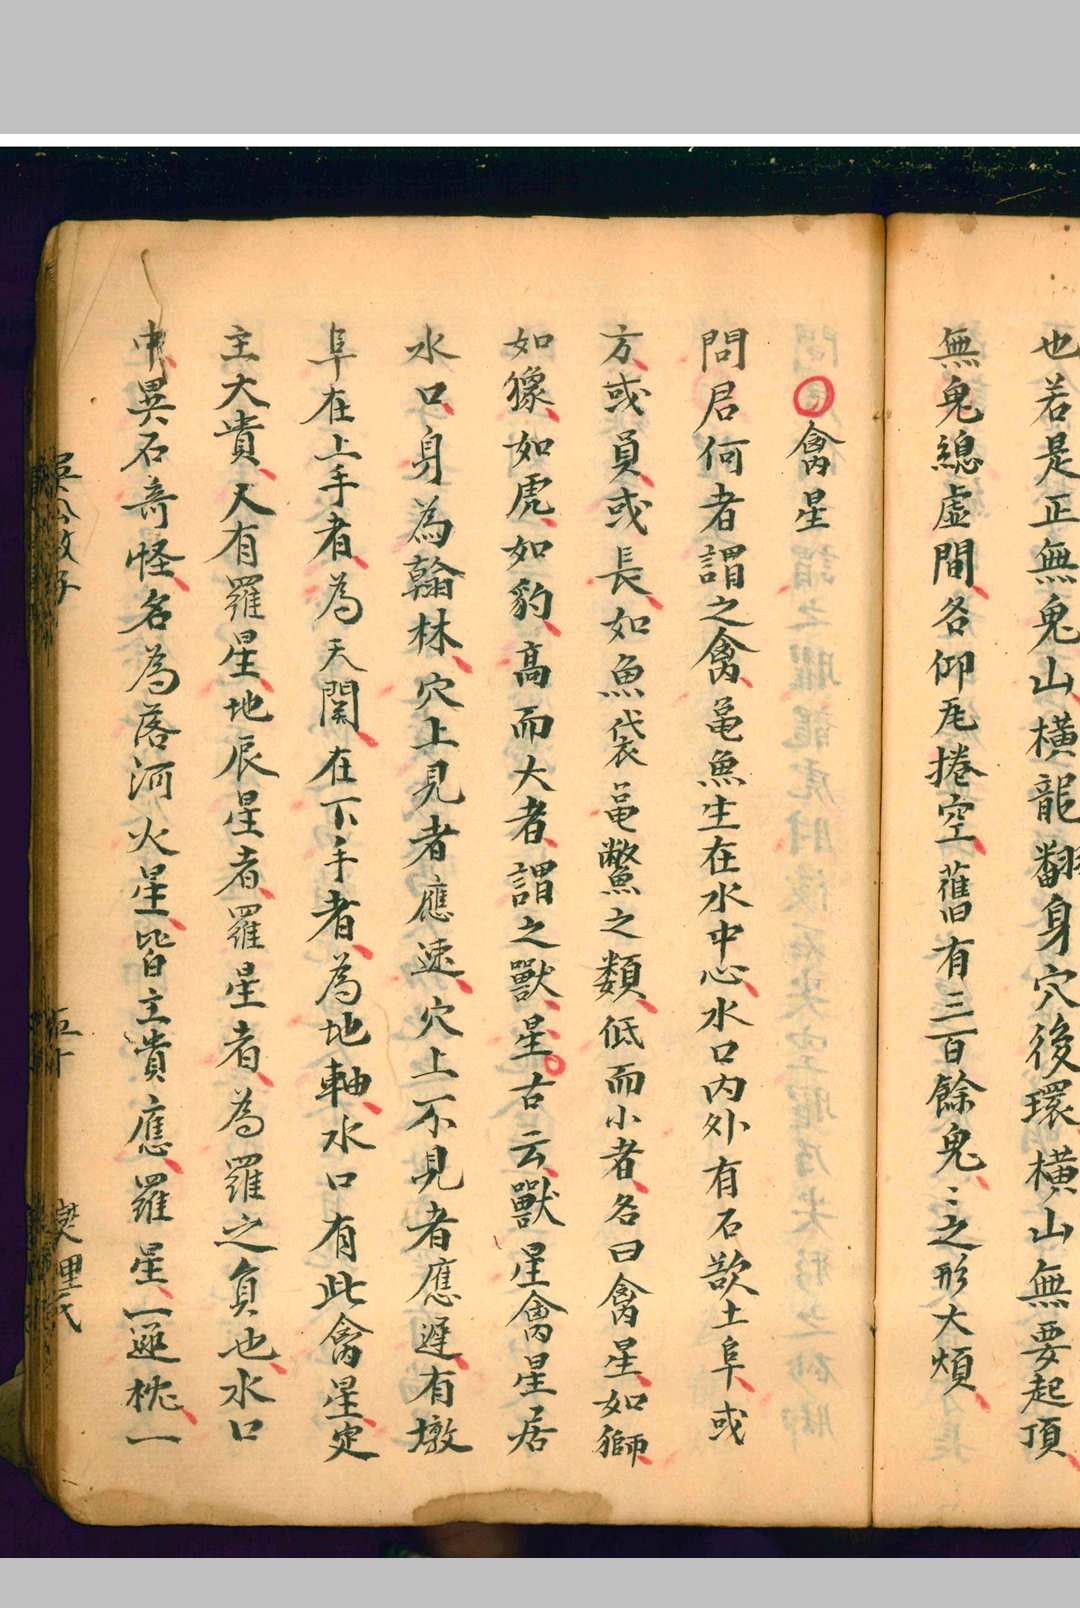 也若是正無鬼山橫龍翻身穴後環橫山無要起頂
無鬼總虛間各仰瓦捲空舊有三百餘鬼〻之形大煩
○禽星
問君何者謂之禽黽魚生在水中心水口內外有石欲土阜或
方或員或長如魚袋黽鱉之類低而小者名曰禽星如獅
如㺄如虎如豹高而大者謂之獸星古云獸星禽星居
水口身為翰林穴上見者應速穴上不見者應遲有墩
阜在上手者為天関在下手者為地軸水口有此禽星定
主大貴天有羅星地辰星者羅星者為羅之負也水口
中異石奇怪名為落河火星皆主貴應羅星一遞枕一
吳公教子
五十
樊理氏